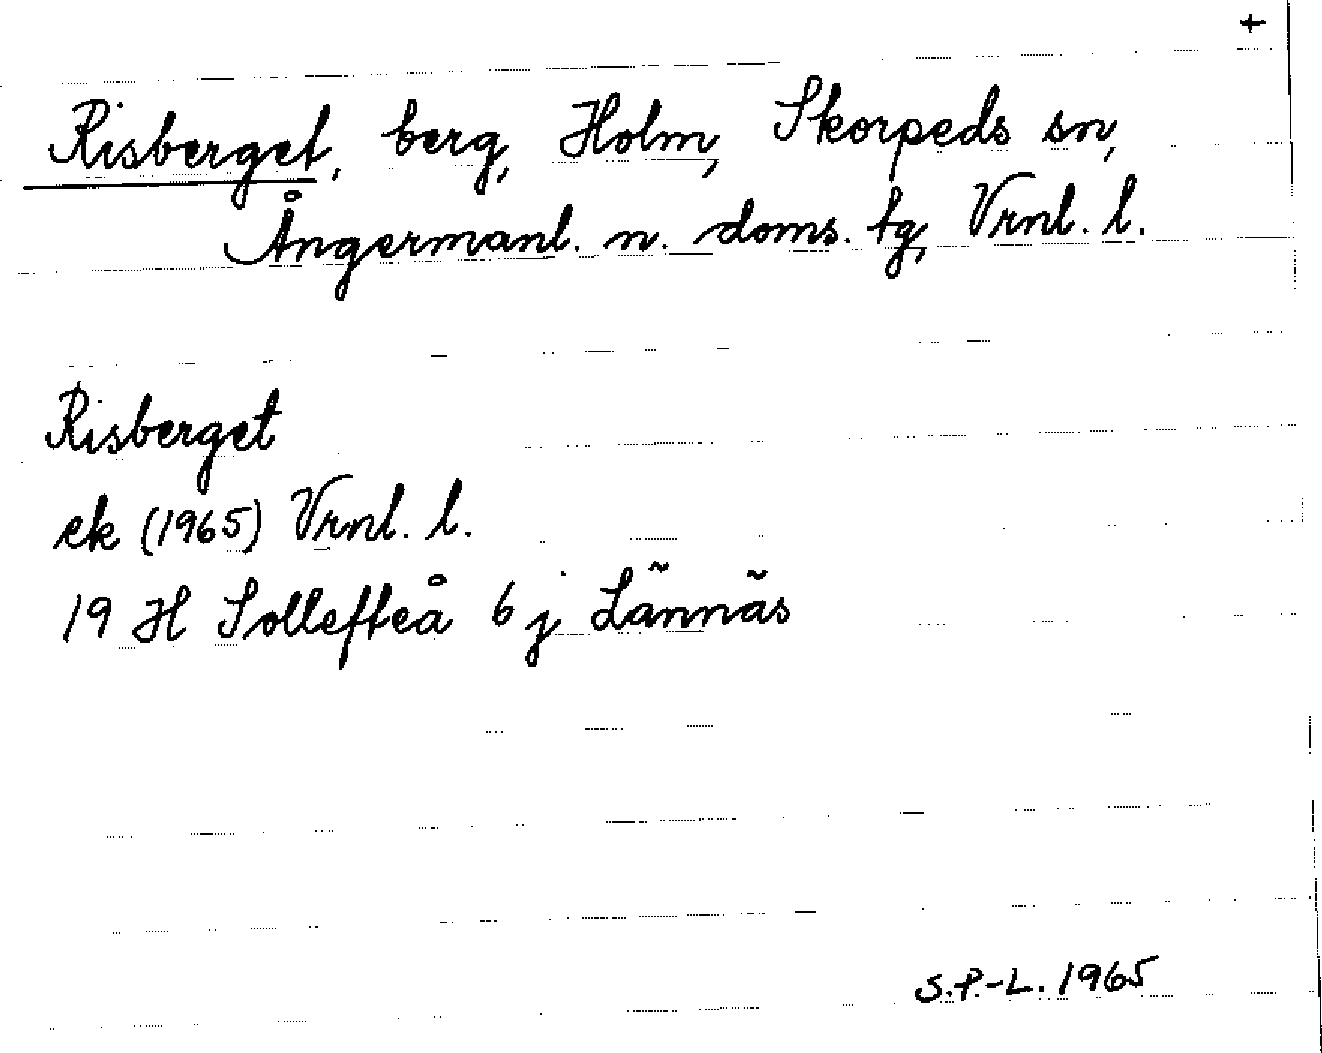 +
Risberget, berg, Holm, Skorpeds sn,
Ångermanl. n. doms. tg, Vrnl. l.
Risberget
ek (1965) Vrnl. l.
19 H Sollefteå 6 j Lännäs
S.P.-L. 1965